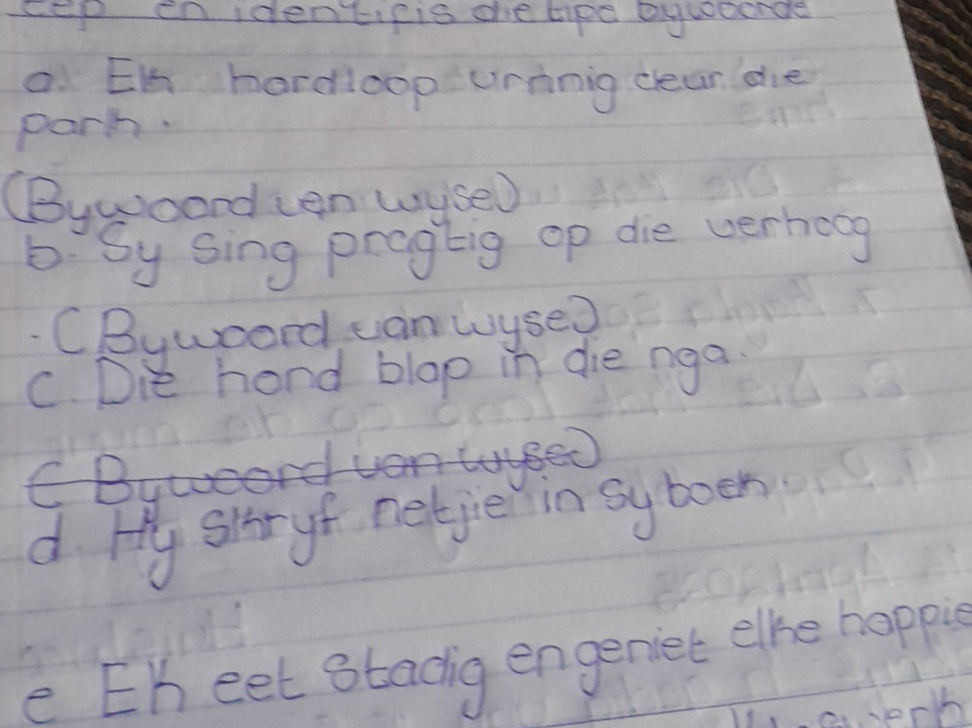 en identifis die tipe bywoorde
a. Ek hardloop vrinnig deur die
park.
(Bywoord van wyse)
b. Sy sing pragtig op die verhoog
(Bywoord van wyse)
c. Die hond blap in die nga.
(Bywoord van wyse)
d. Hy skryf netjie in sy boek
e Ek eet stadig en geniet elke happie